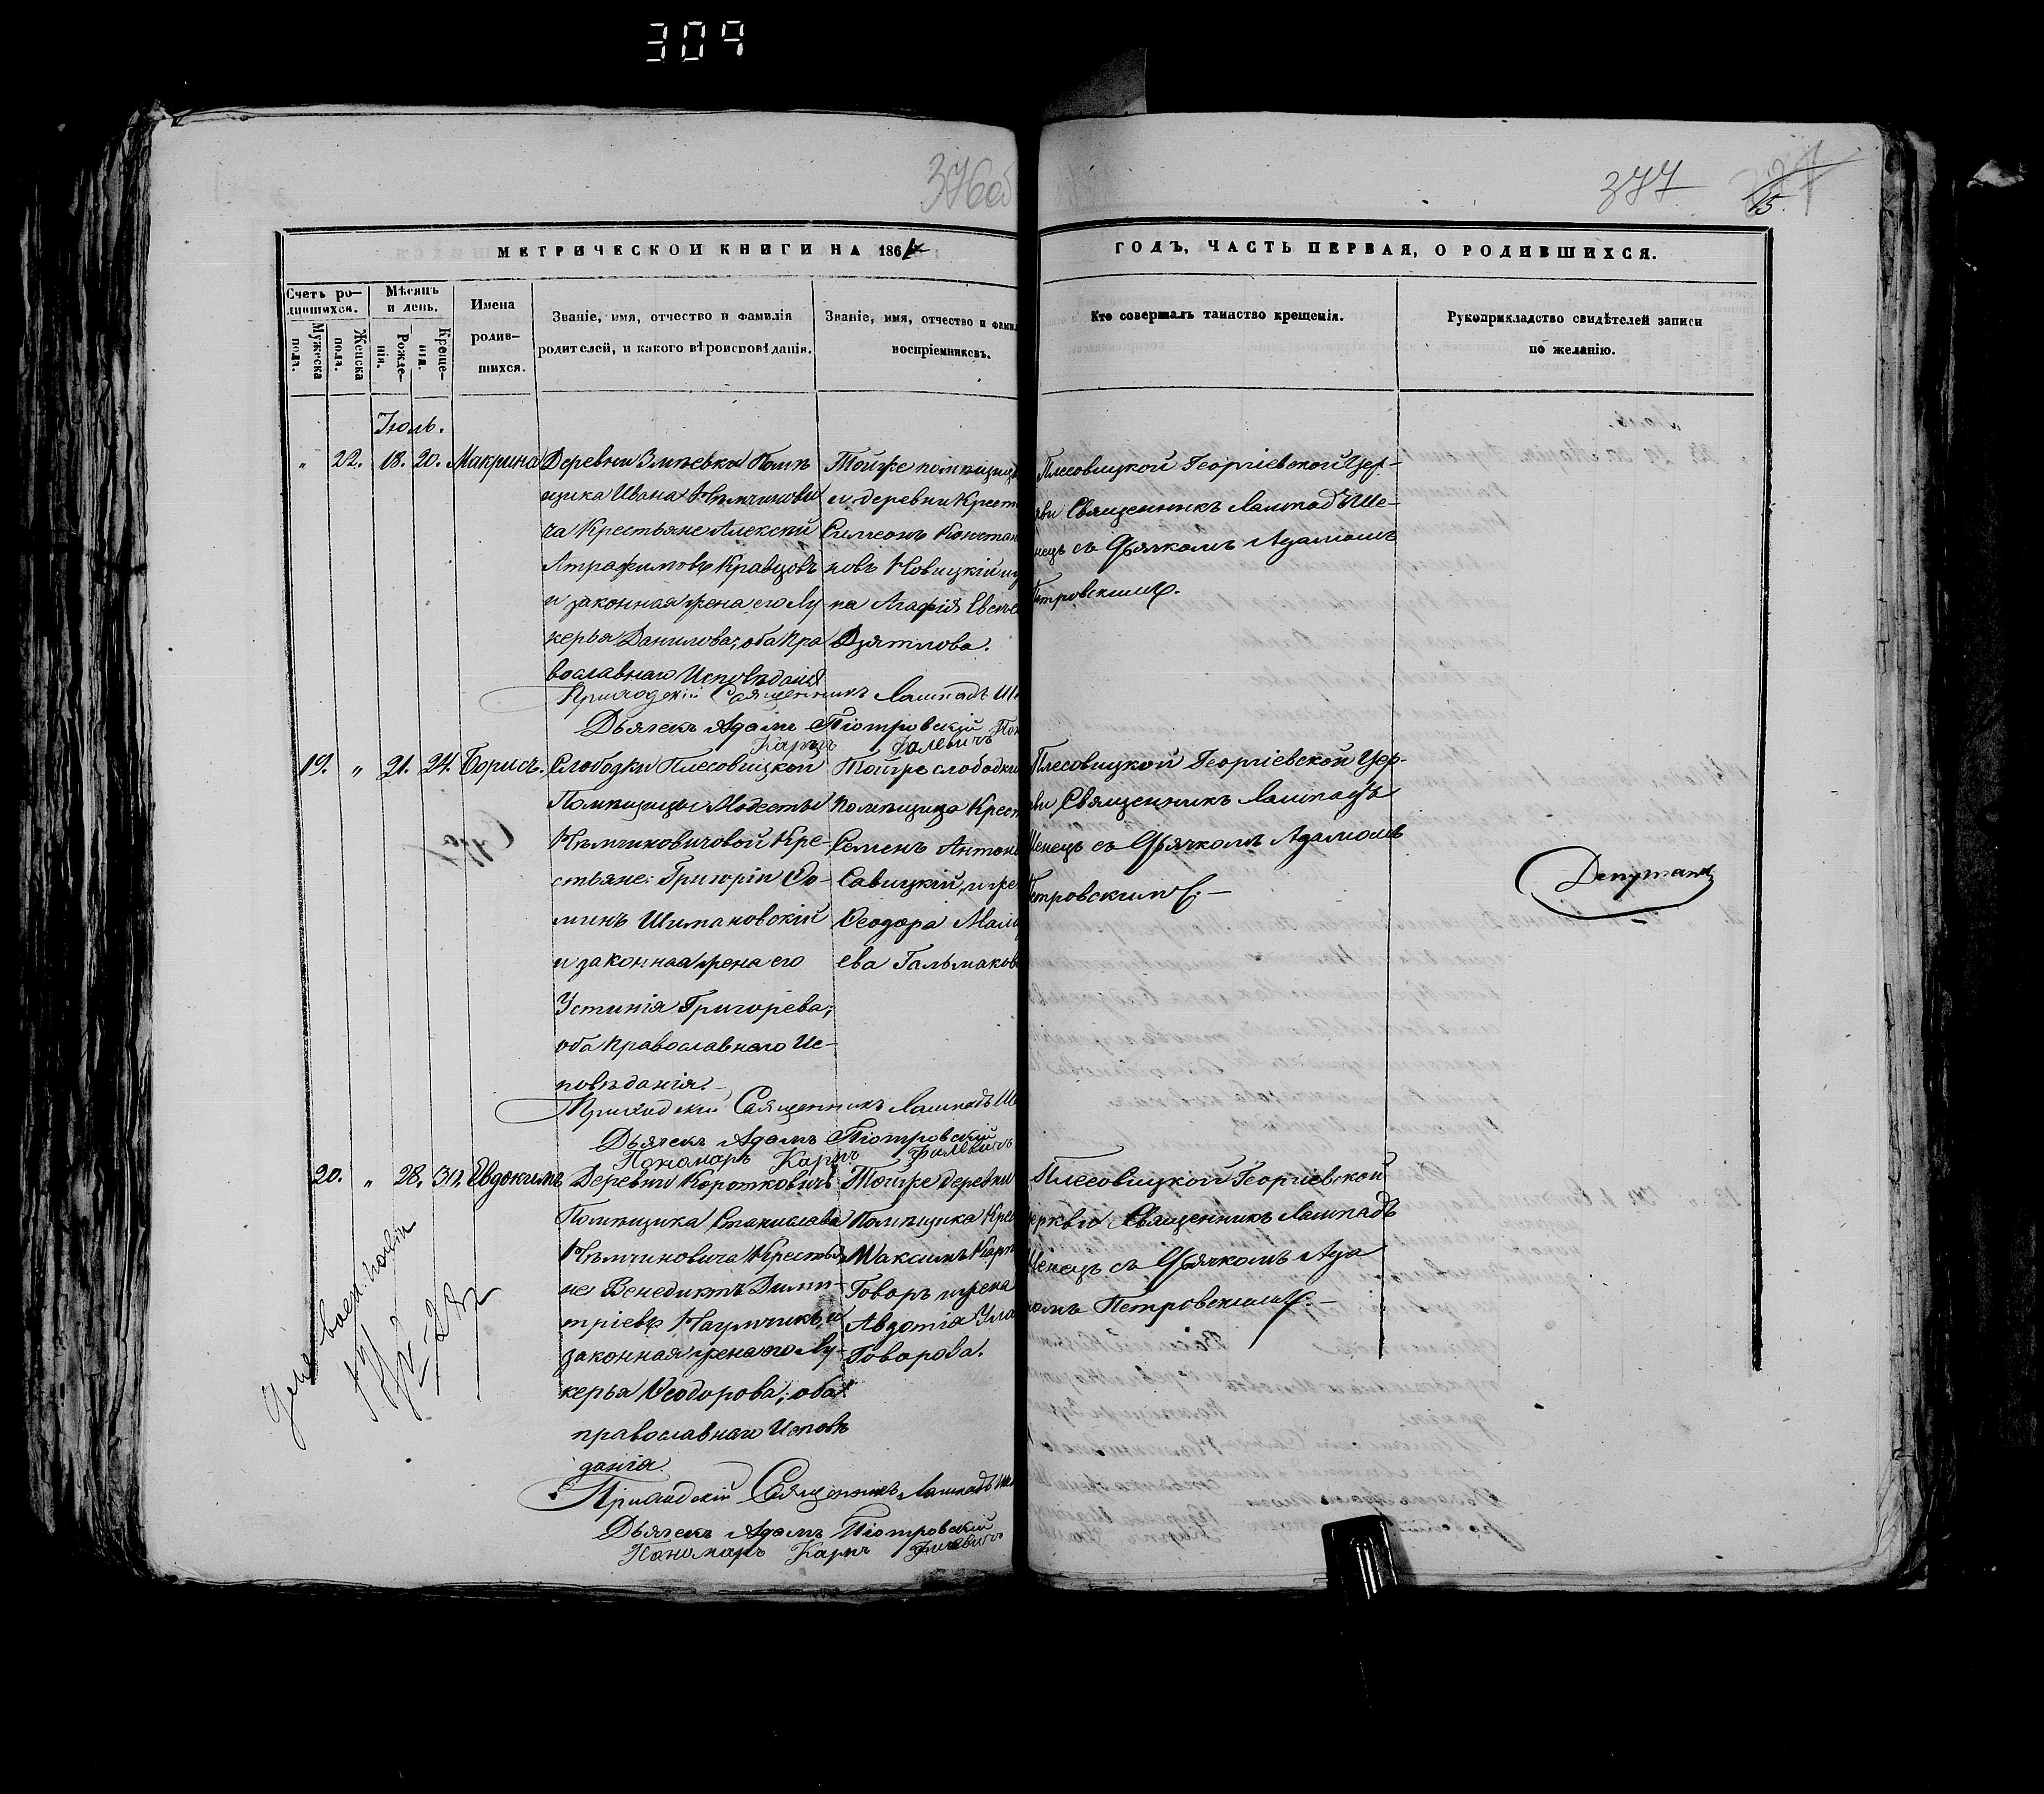 309
376об
377
15.
МЕТРИЧЕСКОЙ КНИГИ НА 186
ГОДЪ, ЧАСТЬ ПЕРВАЯ, О РОДИВШИХСЯ.
Счетъ ро-
дившихся.
Мужеска
пола.
Женска
пола.
Мѣсяцъ
и день.
Рожде-
нія.
Креще-
нія.
Имена
родив-
шихся.
Званіе, имя, отчество и фамилія
родителей, и какого вѣроисповѣданія.
Званіе, имя, отчество и фамил
воспріемниковъ.
Кто совершалъ таинство крещенія.
Рукоприкладство свидѣтелей записи
по желанію.
Іюль.
" 22. 18. 20. Макрина
Деревни Змѣевки Помѣ
щика Ивана Нѣмчинови
ча Крестьяне Алексѣй
Атрафимовъ Кравцовъ
и законная жена его Лу
керья Данилова; оба Пра
вославнаго Исповѣданія
Тойже помѣщицы
и деревни Крест
Симеонъ Констан
новъ Новицкій и
на Агафія Евсѣе
Дзятлова.
Плесовицкой Георгіевской Цер-
кви Священникъ Лампадъ Ше-
нецъ съ Дьячкомъ Адамомъ
Петровскимъ.
Приходскій Священникъ Лампадъ Ше
Дьячекъ Адамъ Піотровскій Пон
Карпъ Фалевичъ
19. " 21. 24. Борисъ.
Слободки Плесовицкой
Помѣщицы Модесты
Нѣмчиновичовой Кре-
стьяне: Григорій Фо-
минъ Шимановскій
и законная жена его
Устинія Григорева;
оба православнаго Ис-
повѣданія.
Тойже слободки
помѣщица Крест
Семенъ Антоно
Савицкій, и же
Феодора Мат
ева Гальмакова
Плесовицкой Георгіевской Цер-
кви Священникъ Лампадъ
Шенецъ съ Дьячкомъ Адамомъ
Петровскимъ.
Депутатъ
Приходскій Священникъ Лампадъ Ше
Дьячекъ Адамъ Піотровскій
Пономарь Карпъ Фалевичъ
20. " 28. 30. Евдокимъ
Деревни Коротковичъ
Помѣщика Станислава
Нѣмчиновича Крестья
не Венедиктъ Дими-
тріевъ Наумчикъ, и
законная жена его Лу-
керья Феодорова; оба
православнаго Исповѣ
данія.
Тойже деревни
Помѣщика Кре
Максимъ Карп
Говоръ и жена
Авдотія Ула
Говорова.
Плесовицкой Георгіевской
Церкви Священникъ Лампадъ
Шенецъ съ Дьячкомъ Ада
момъ Петровскимъ.
Приходскій Священникъ Лампадъ Ше
Дьячекъ Адамъ Піотровскій
Пономарь Карпъ Фалевичъ